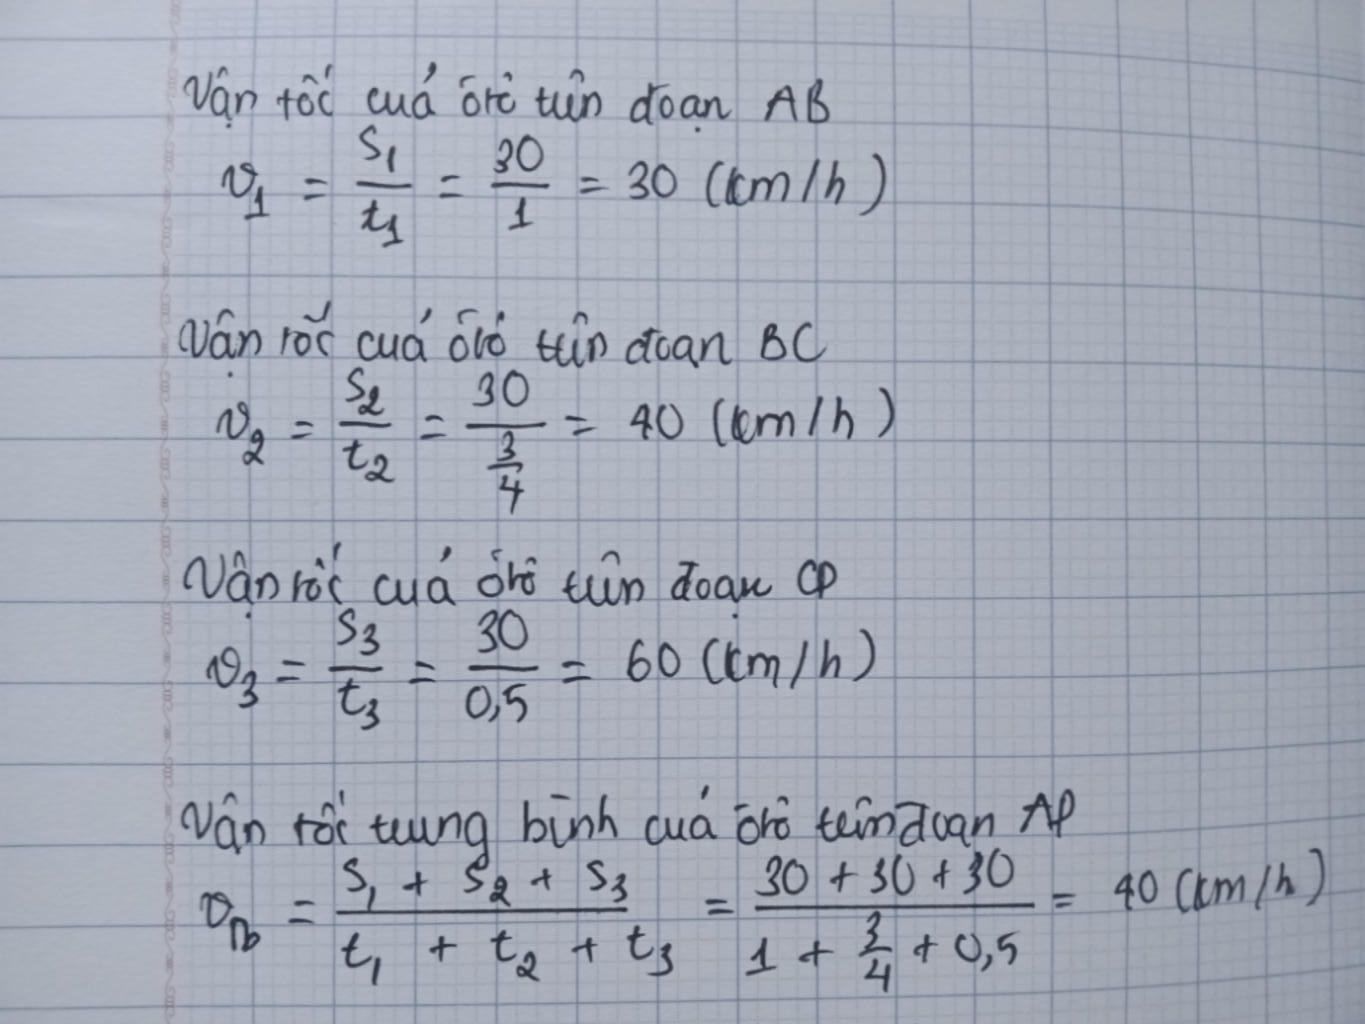 Vận tốc cuả ôtô trên đoạn AB
v₁ = S₁/t₁ = 30/1 = 30 (km/h)
Vận tốc cuả ôtô trên đoạn BC
v₂ = S₂/t₂ = 30/(3/4) = 40 (km/h)
Vận tốc cuả ôtô trên đoạn CD
v₃ = S₃/t₃ = 30/0,5 = 60 (km/h)
Vận tốc trung bình cuả ôtô trên đoạn AD
v_tb = (S₁ + S₂ + S₃)/(t₁ + t₂ + t₃) = (30 + 30 + 30)/(1 + 3/4 + 0,5) = 40 (km/h)